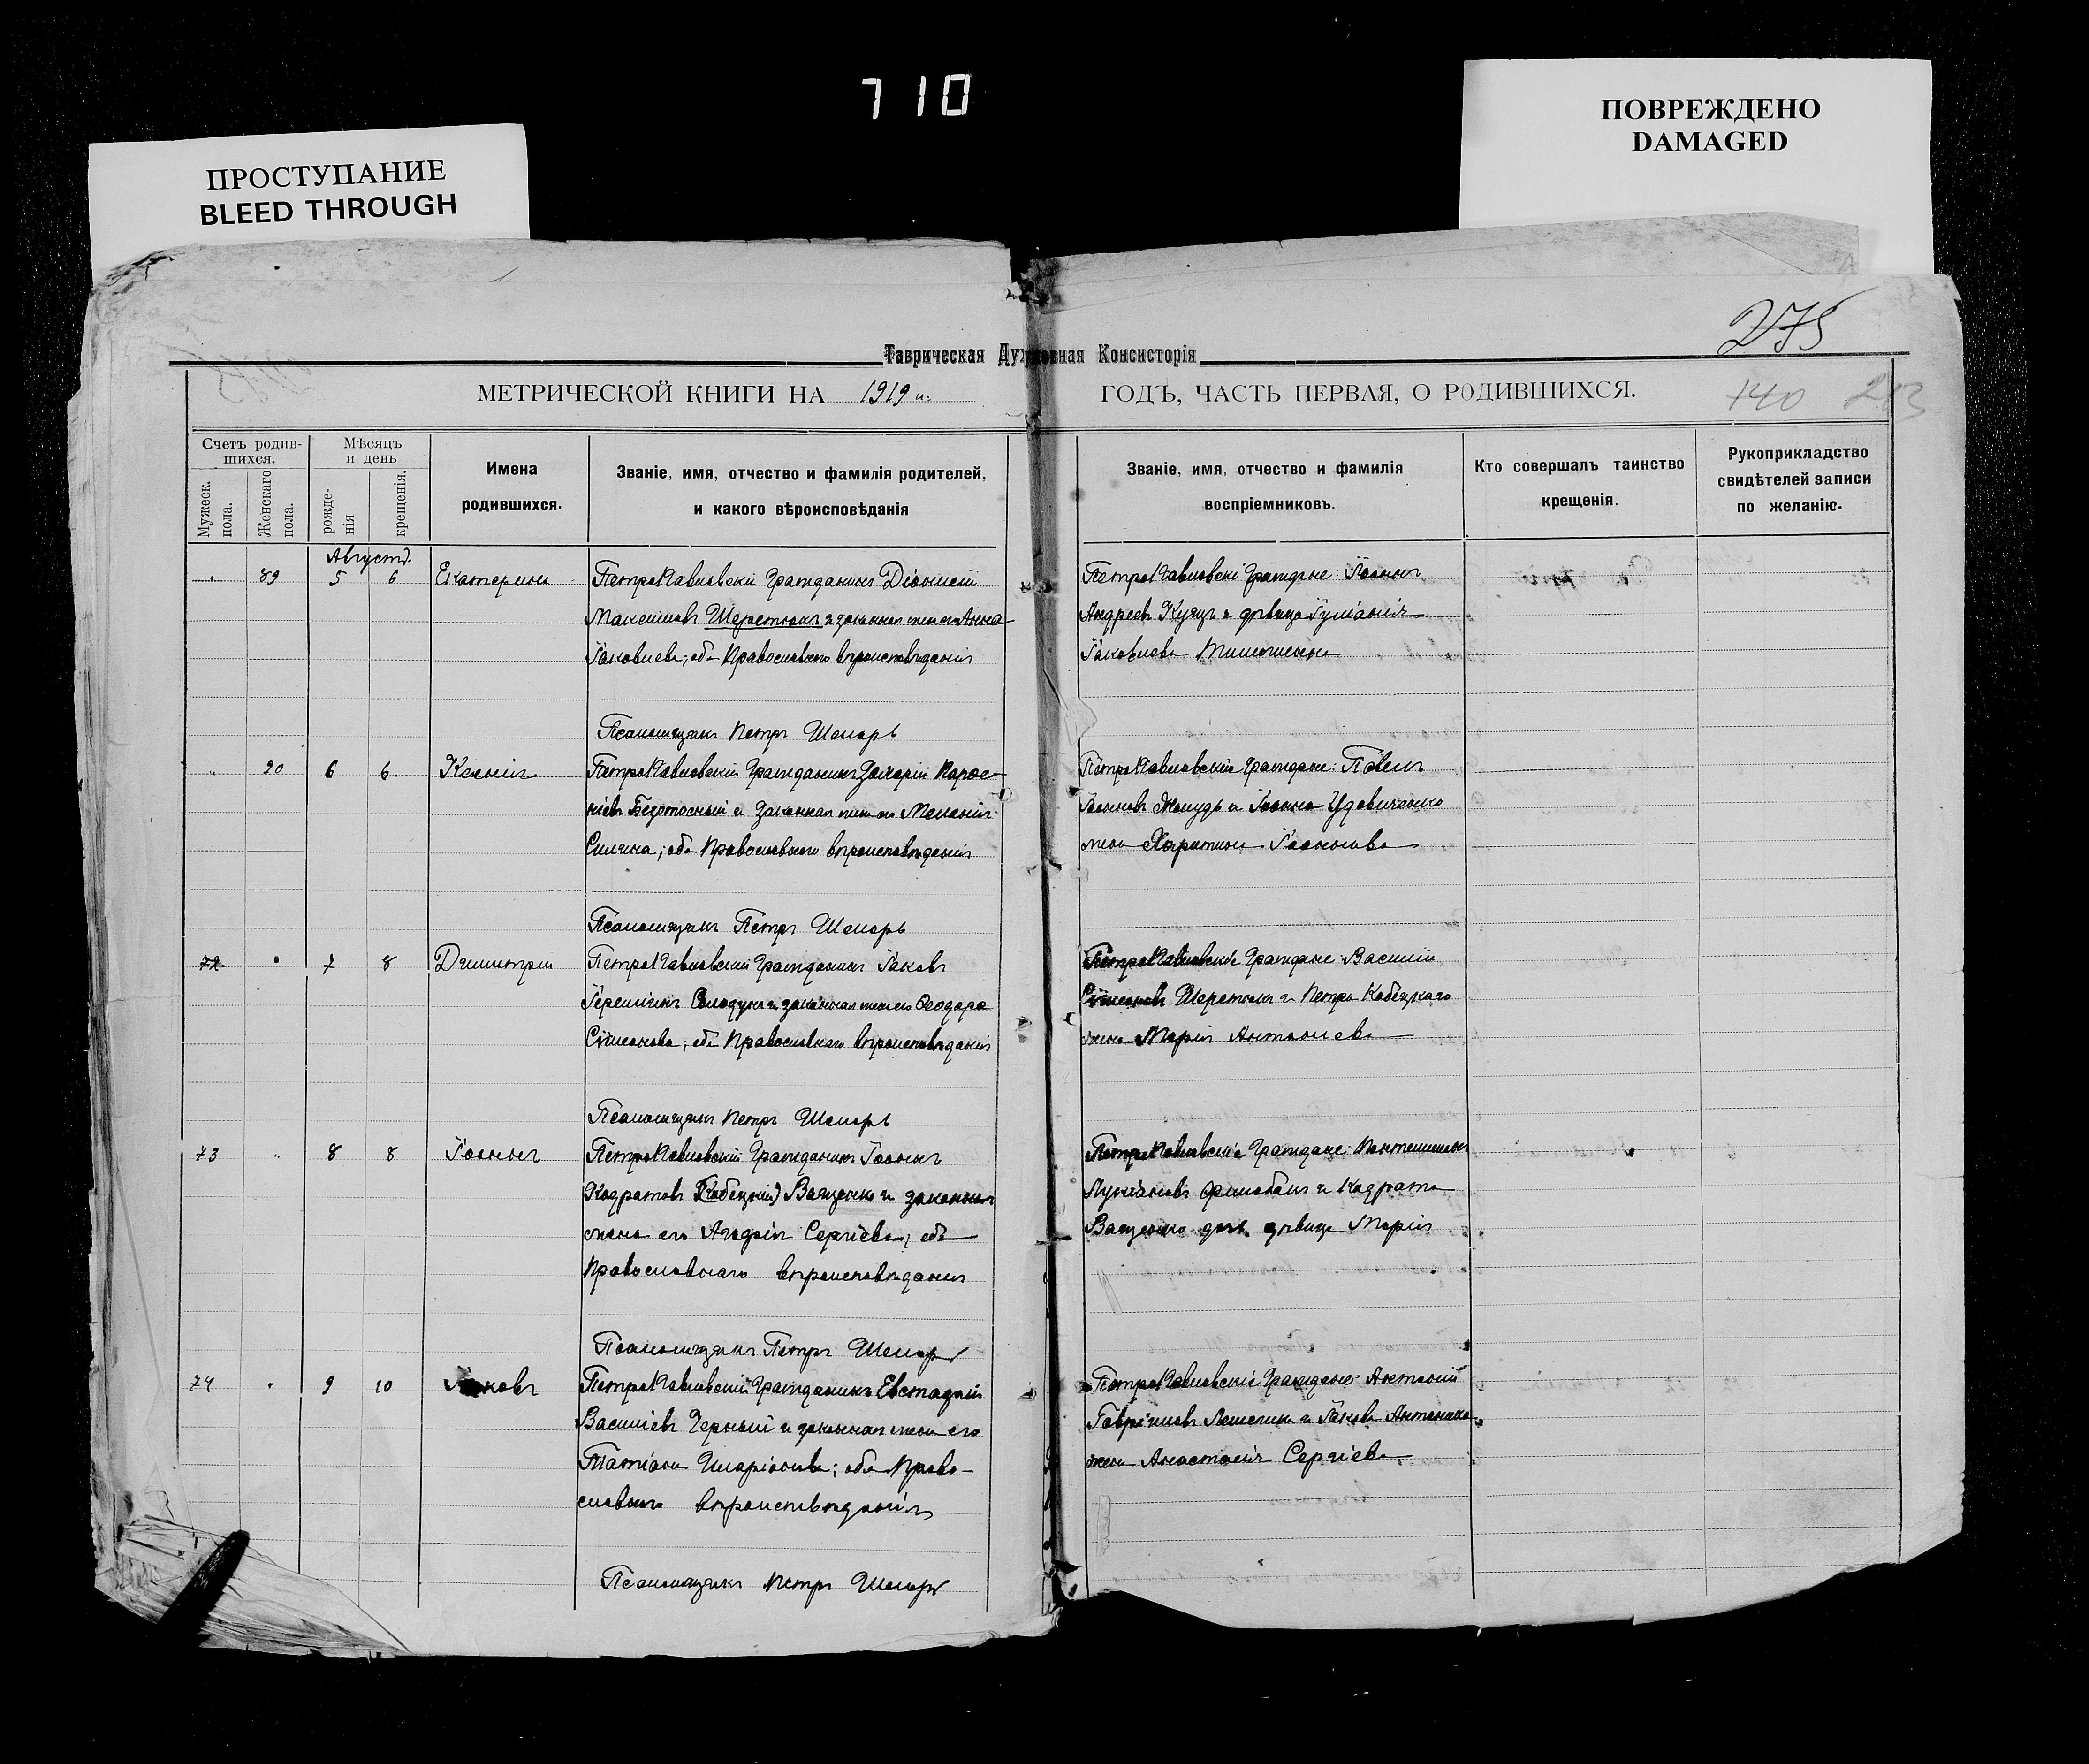 710
ПРОСТУПАНИЕ
BLEED THROUGH
ПОВРЕЖДЕНО
DAMAGED
275
Таврическая Духовная Консисторія
МЕТРИЧЕСКОЙ КНИГИ НА 1919 г. ГОДЪ, ЧАСТЬ ПЕРВАЯ, О РОДИВШИХСЯ.
140 283
Счетъ родив-
шихся.
Мужеск. пола.
Женскаго пола.
Мѣсяцъ
и день
рожде-
нія
крещенія.
Имена
родившихся.
Званіе, имя, отчество и фамилія родителей,
и какого вѣроисповѣданія
Званіе, имя, отчество и фамилія
воспріемниковъ.
Кто совершалъ таинство
крещенія.
Рукоприкладство
свидѣтелей записи
по желанію.
Августъ.
89 5 6 Екатерина
ПетроПавловскій Гражданинъ Діонисій
Максимовъ Шереметъ и законная жена его Анна
Іаковлева; оба Православнаго вѣроисповѣданія
ПетроПавловскіе Граждане: Іоаннъ
Андреевъ Куяцъ и дѣвица Іуліанія
Іаковлева
Псаломщикъ Петръ Шеларь
90 6 6. Ксенія
ПетроПавловскій Гражданинъ Захарій
Безотосный и законная жена его Меланія
оба Православнаго вѣроисповѣданія
ПетроПавловскіе Граждане: Павелъ
Іоанновъ и Іоанна Удовиченко
жена Іоаннова
Псаломщикъ Петръ Шеларь
72. 7 8 Димитрій
ПетроПавловскій Гражданинъ Іаковъ
Іереміинъ Солодунъ и законная жена его Ѳеодора
Сѵмеонова; оба Православнаго вѣроисповѣданія
ПетроПавловскіе Граждане: Василій
Сѵмеоновъ и Петра Кобецкаго
жена Марія Антоніева
Псаломщикъ Петръ Шеларь
73 8 8 Іоаннъ
ПетроПавловскій Гражданинъ Іоаннъ
Кодратовъ (Кобецкій) Ващенко и законная
жена его Агафія Сергіева, оба
Православнаго вѣроисповѣданія
ПетроПавловскіе Граждане: Пантелимонъ
Лукіановъ и Кодрата
Ващенко дочь дѣвица Марія
Псаломщикъ Петръ Шеларь
74 9 10 Іаковъ
ПетроПавловскій Гражданинъ Евстафій
Василіевъ Черный и законная жена его
Татіана Иларіонова; оба Право-
славнаго вѣроисповѣданія
ПетроПавловскіе Граждане: Антоній
Гавріиловъ и Іакова Антоненко
жена Анастасія Сергіева
Псаломщикъ Петръ Шеларь